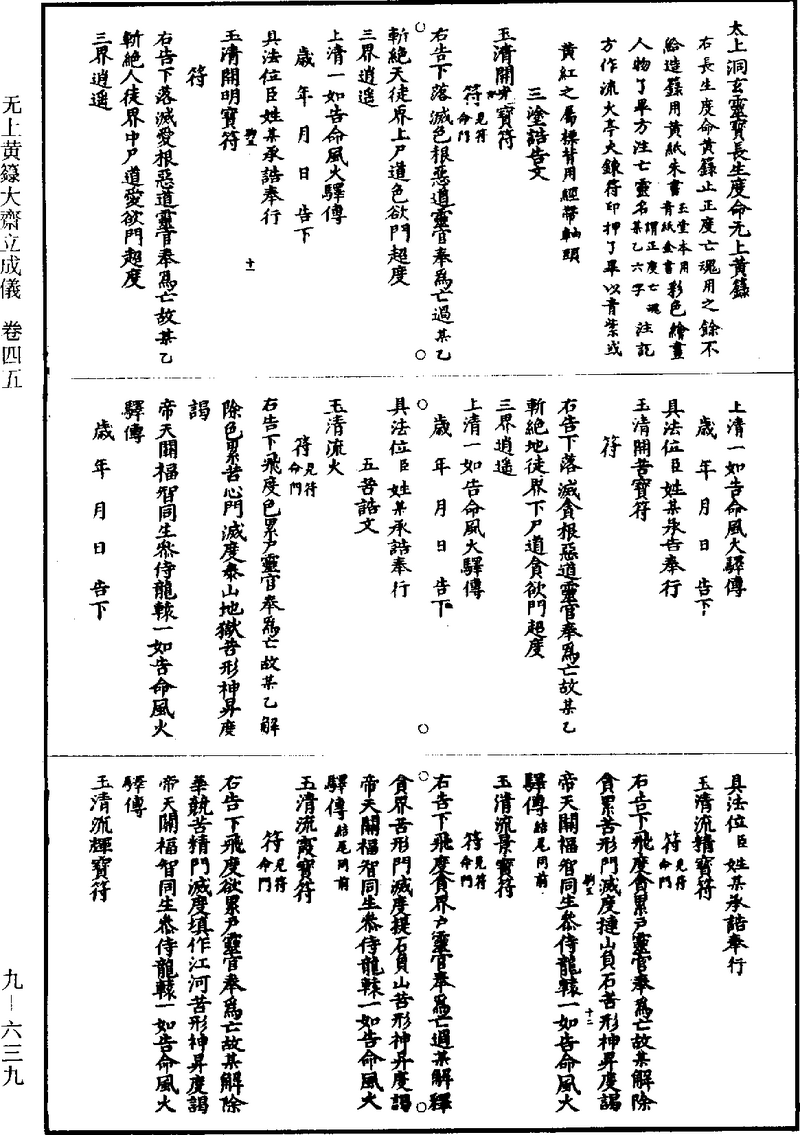 太上洞玄靈寶長生度命无上黃籙
右長生度命黃籙止正度亡魂用之餘不
給造籙用黃紙朱書玉堂本用青紙金書彩色繪畫
人物了畢方注亡靈名謂正度亡魂某乙六字注訖
方作流火亭大鍊符印押了畢以青紫或
黃紅之屬裸背用經帶軸頭
三塗誥告文
玉清開寶符
符見符命門
右告下落滅色根惡道靈官奉為亡過某乙
斬絕天徒界上尸道色欲門超度
三界逍遙
上清一如告命風火驛傳
歲年月日告下
具法位臣姓某承誥奉行
玉清開明寶符
符
右告下落滅愛根惡道靈官奉為亡故某乙
斬絕人徒界中尸道愛欲門超度
三界逍遙
上清一如告命風火驛傳
歲年月日告下
具法位臣姓某承告奉行
玉清開苦寶符
符
右告下落滅貪根惡道靈官奉為亡故某乙
斬絕地徒界下尸道貪欲門超度
三界逍遙
上清一如告命風火驛傳
歲年月日告下
具法位臣姓某承誥奉行
五苦誥文
玉清流火
符見符命門
右告下飛度色累尸靈官奉為亡故某乙解
除色累苦心門滅度泰山地獄苦形神昇度
謁
帝天關福智同生參侍龍轅一如告命風火
驛傳
歲年月日告下
具法位臣姓某承誥奉行
玉清流精寶符
符見符命門
右告下飛度貪累尸靈官奉為亡故某解除
貪累苦形門滅度揵山負石苦形神昇度謁
十二
帝天關福智同生參侍龍轅一如告命風火
驛傳結尾同前
玉清流景寶符
符見符命門
右告下飛度貪界尸靈官奉為亡過某解釋
貪界苦形門滅度揵石負山苦形神昇度謁
帝天關福智同生參侍龍轅一如告命風火
驛傳結尾同前
玉清流霞寶符
符見符命門
右告下飛度欲累尸靈官奉為亡故某解除
華競苦精門滅度填作江河苦形神昇度謁
帝天關福智同生參侍龍轅一如告命風火
驛傳
玉清流輝寶符
无上黃籙大齋立成儀 卷四五
九—六三九